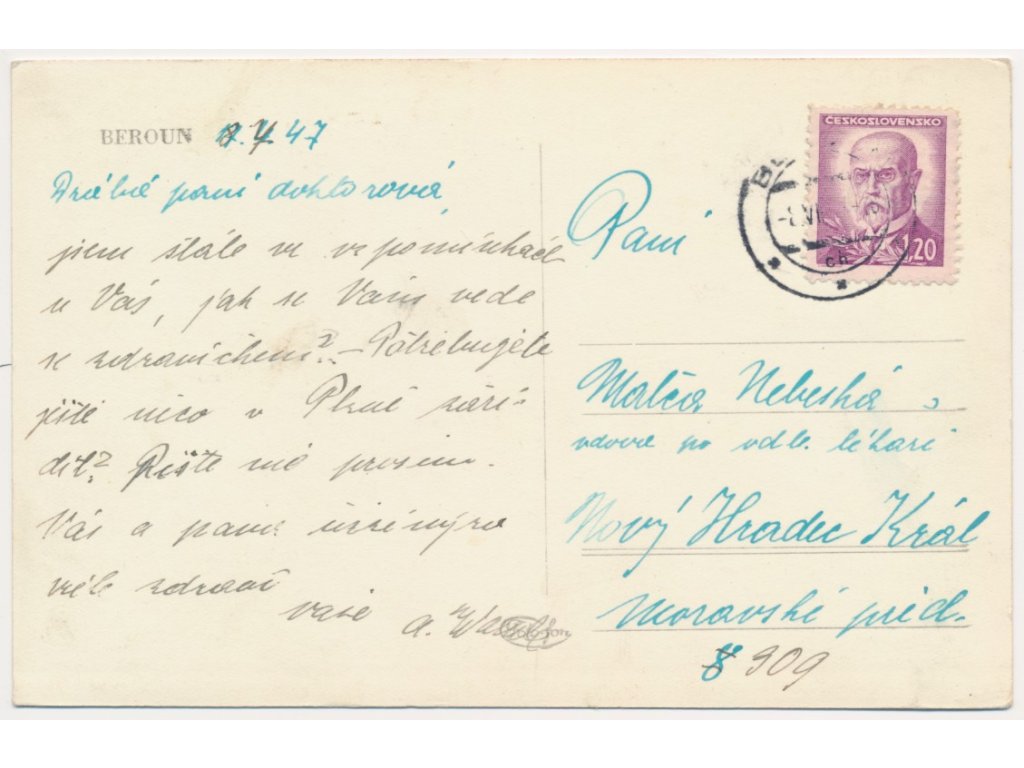 BEROUN 8.4.47
paní doktorová,
jsem stále ve vzpomínkách
u Vás, jak se Vám vede
se zdravíčkem? – Potřebujete
ještě něco v Plzni zaří-
dit? Pište mě prosím.
Vás a paní
vřele zdraví
vaše
ČESKOSLOVENSKO
1,20
-8.VI
Paní
Matča Nebeská,
vdova po odb. lékaři
Nový Hradec Král
Moravské před.
909